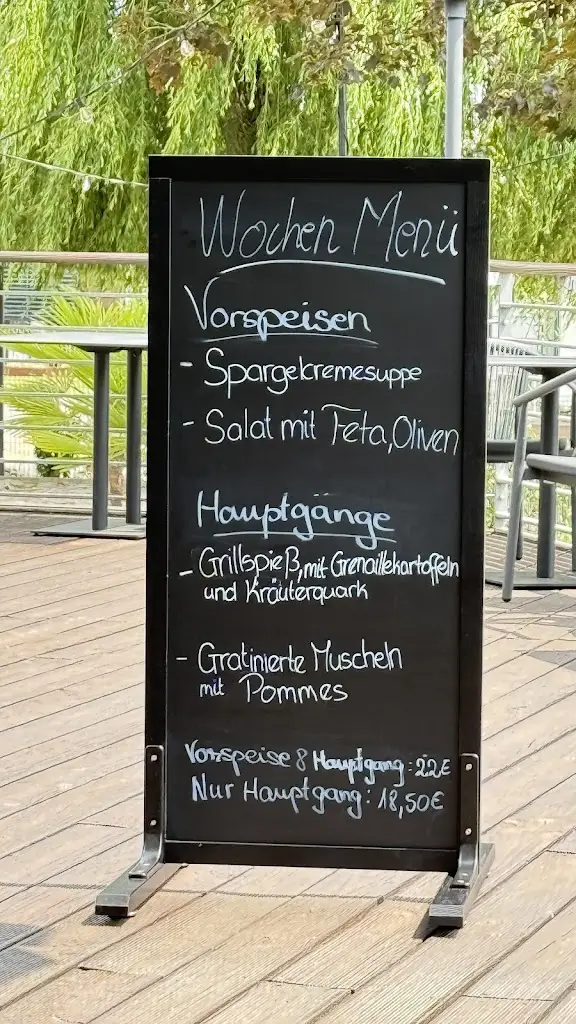 Wochen Menü
Vorspeisen
- Spargelcremesuppe
- Salat mit Feta, Oliven
Hauptgänge
- Grillspieß, mit Grenaillekartoffeln
und Kräuterquark
- Gratinierte Muscheln
mit Pommes
Vorspeise & Hauptgang: 22€
Nur Hauptgang: 18,50€